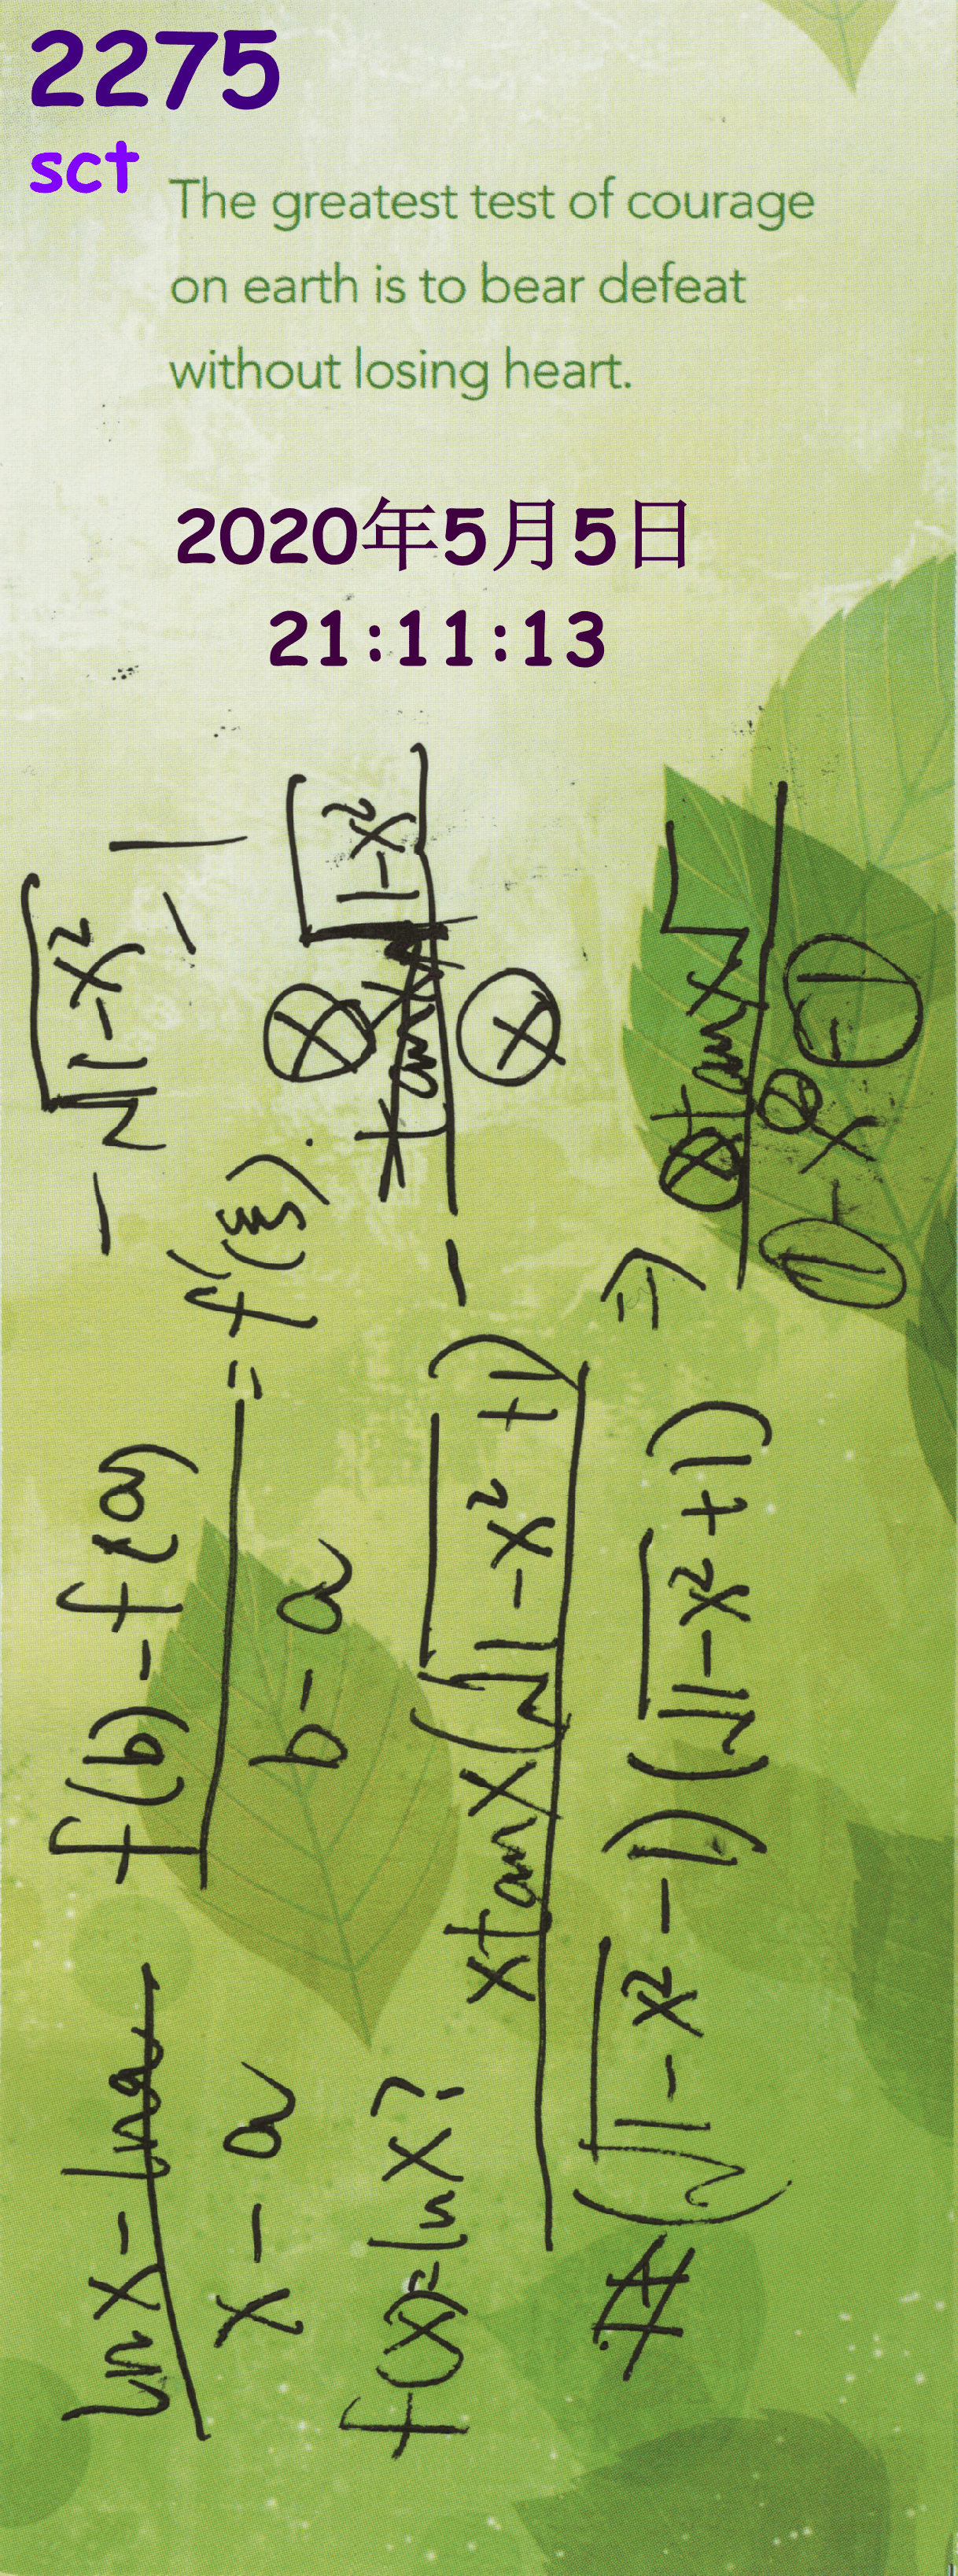 2275
sct
The greatest test of courage
on earth is to bear defeat
without losing heart.
2020年5月5日
21:11:13
(ln x - ln a) / (x - a)
(f(b) - f(a)) / (b - a) = f'(ξ).
- √(1-x²) - 1
f(x) = ln x?
x tan x (√(1-x²) + 1)
(√(1-x²) - 1)(√(1-x²) + 1)
⇒
1 - x² - 1